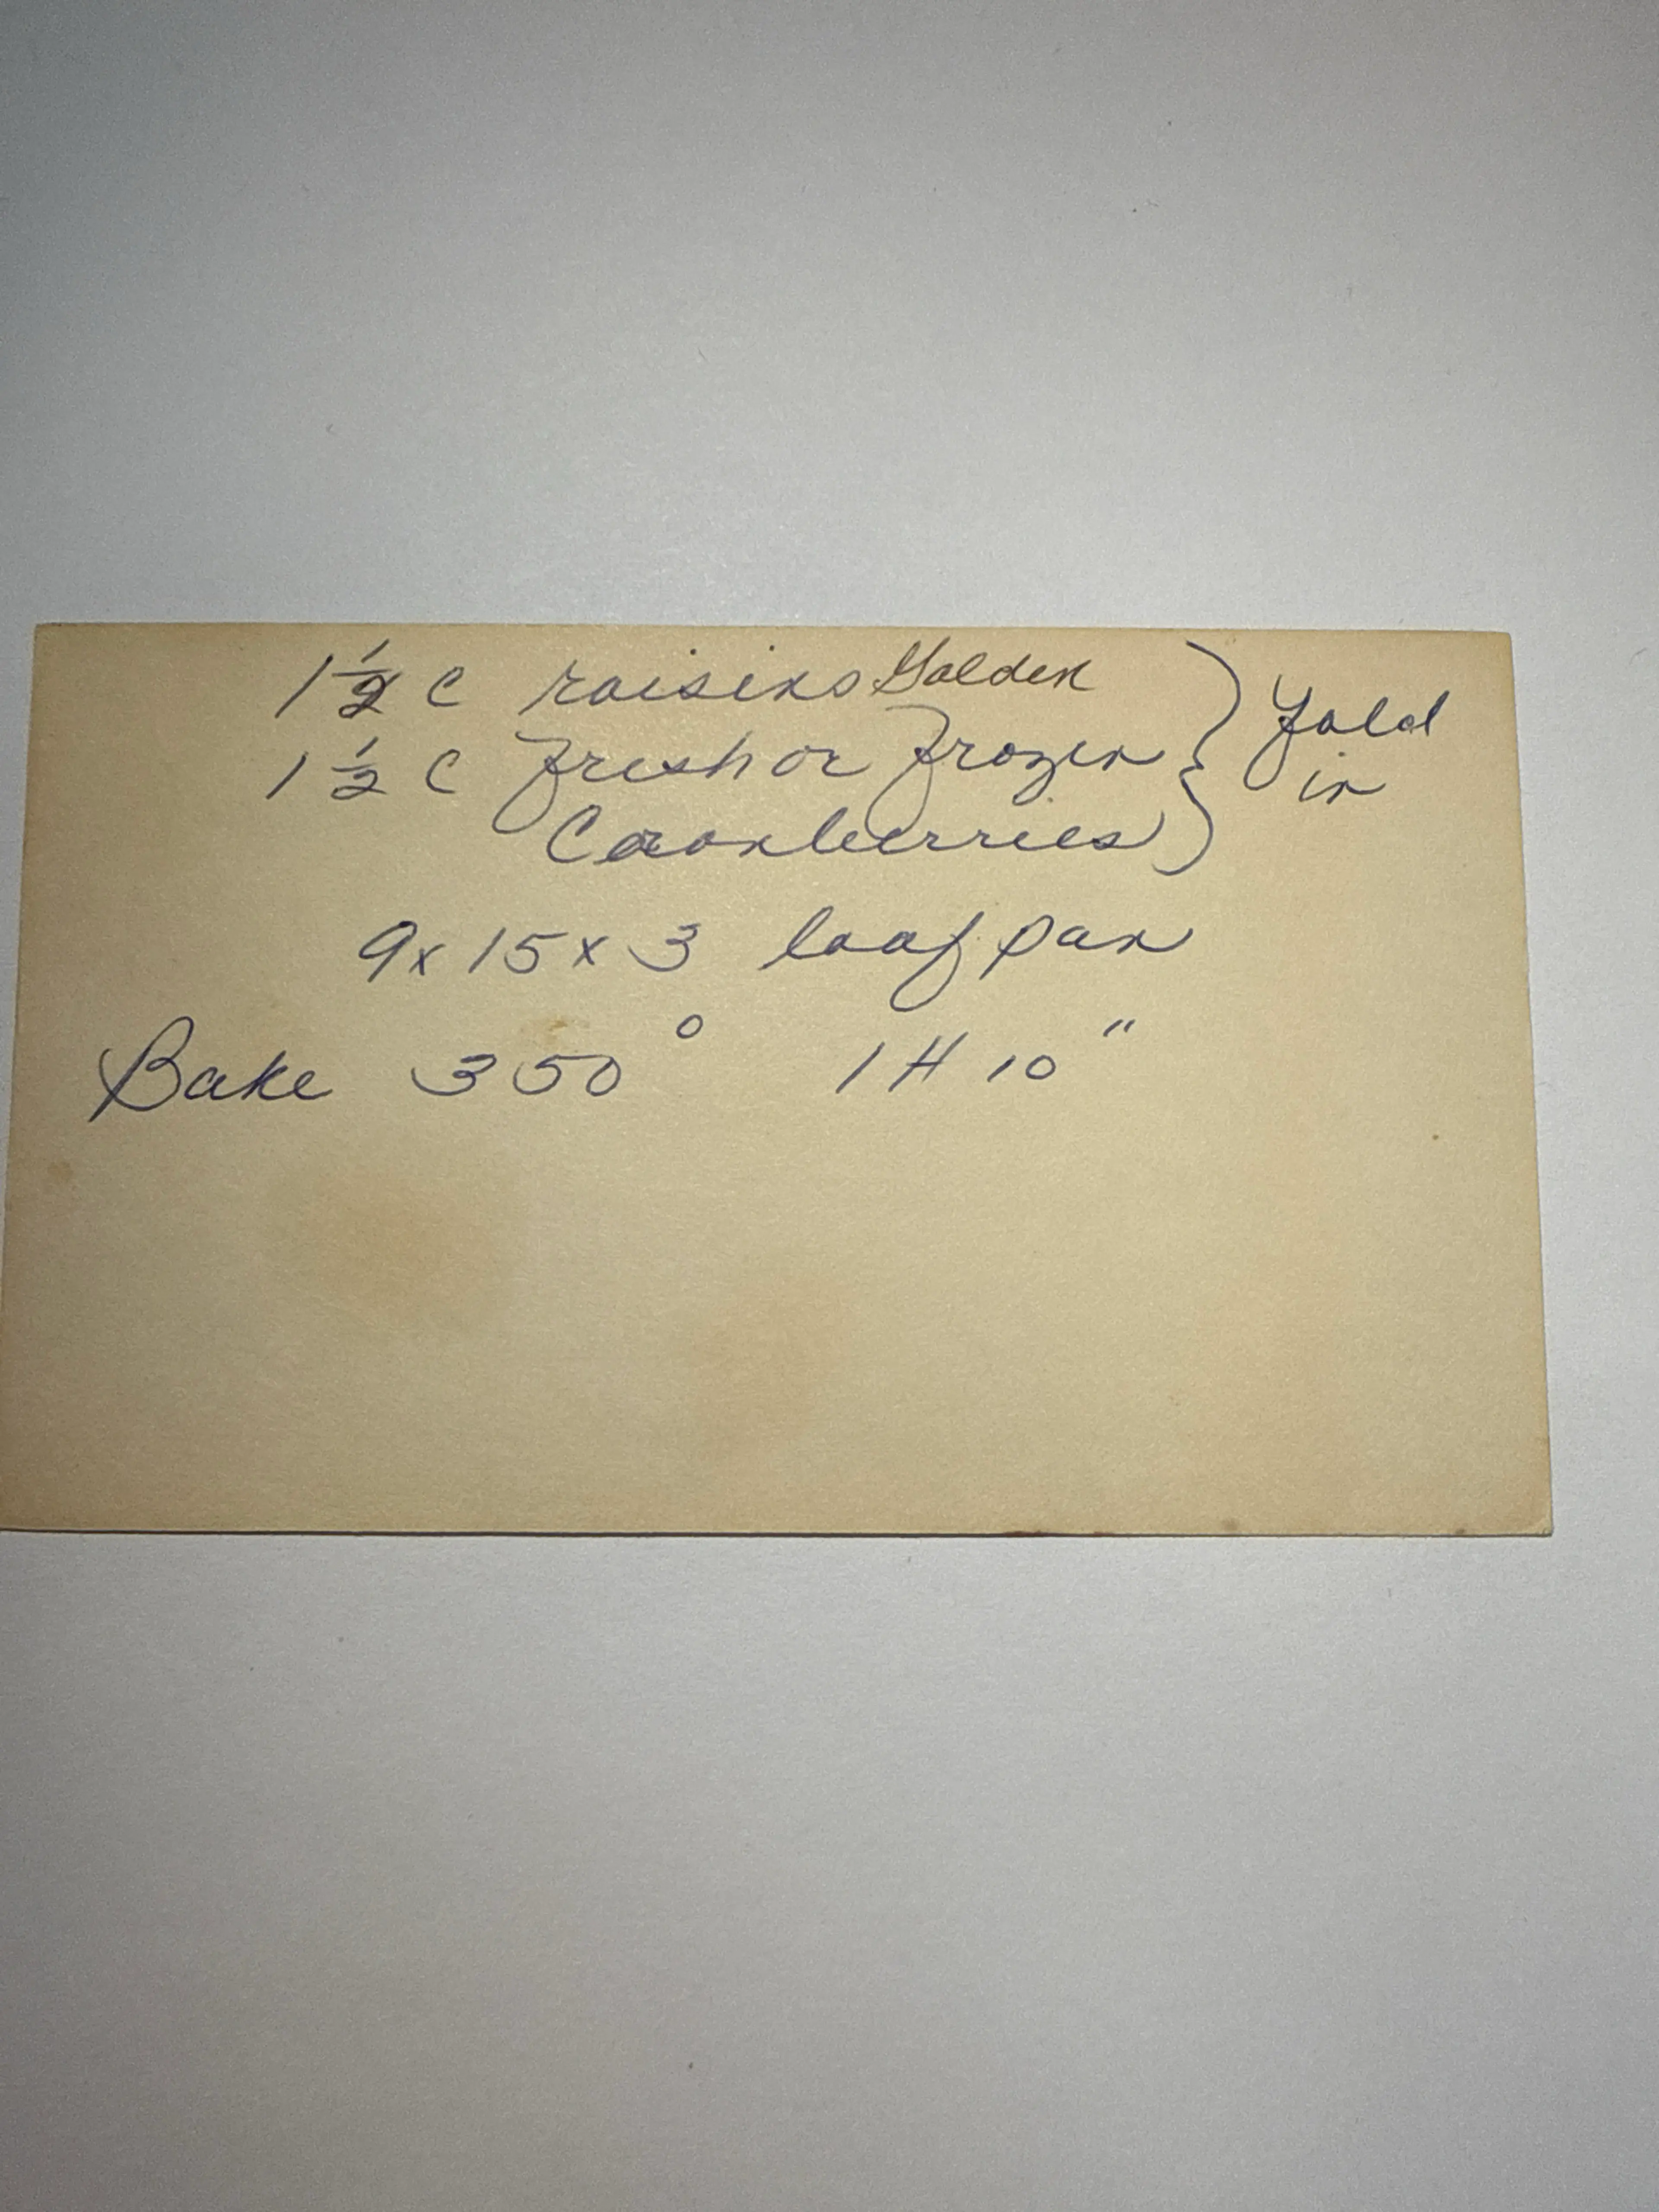 1 1/2 C raisins Golden } Fold
1 1/2 C fresh or frozen in
Cranberries
9 x 15 x 3 loaf pan
Bake 350° 1 H 10"